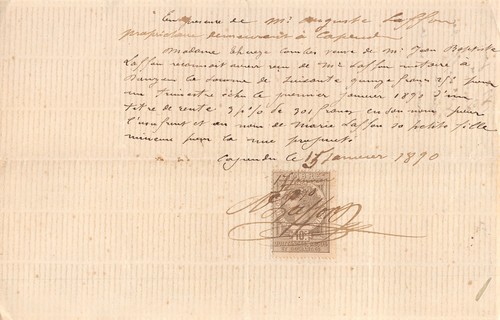 En présence de Mr Auguste Laffon,
propriétaire demeurant à Capendu
Madame Thérèse Combes veuve de Mr Jean Baptiste
Laffon reconnait avoir reçu de Me Laffon notaire à
la somme de soixante quinze francs 25 pour
un trimestre échu le premier janvier 1890 d'un
titre de rente 3 p% de 301 francs en son nom pour
l'usufruit et au nom de Marie Laffon sa petite fille
mineure pour la nue propriété
Capendu le 15 Janvier 1890
17 Janvier
1890
Laffon
10c